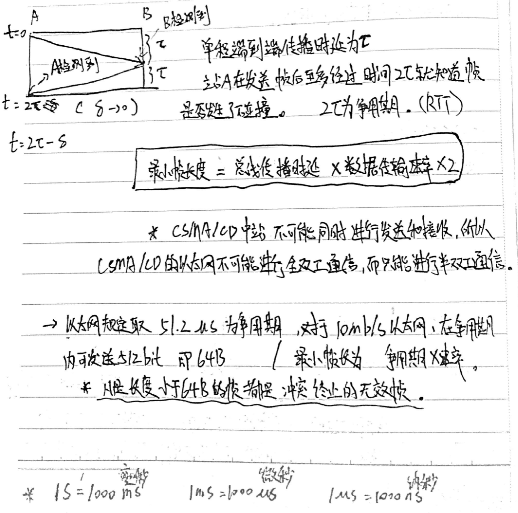 A B B检测到
t=0
τ
A检测到
τ
t=2τ-δ (δ→0)
t=2τ-δ
单程端到端传播时延为τ
主站A在发送帧后至多经过时间2τ就知道帧
是否发生了碰撞。 2τ为争用期.(RTT)
最小帧长度 = 总线传播时延 × 数据传输速率 ×2
* CSMA/CD中站不可能同时进行发送和接收,所以
CSMA/CD的以太网不可能进行全双工通信,而只能进行半双工通信.
→ 以太网规定取 51.2 us 为争用期,对于10mb/s以太网,在争用期
内可发送512bit 即64B / 最小帧长为 争用期×速率.
* 凡是长度小于64B的帧都是冲突终止的无效帧.
毫秒 微秒 纳秒
* 1S=1000 ms 1ms=1000 us 1us=1000 ns